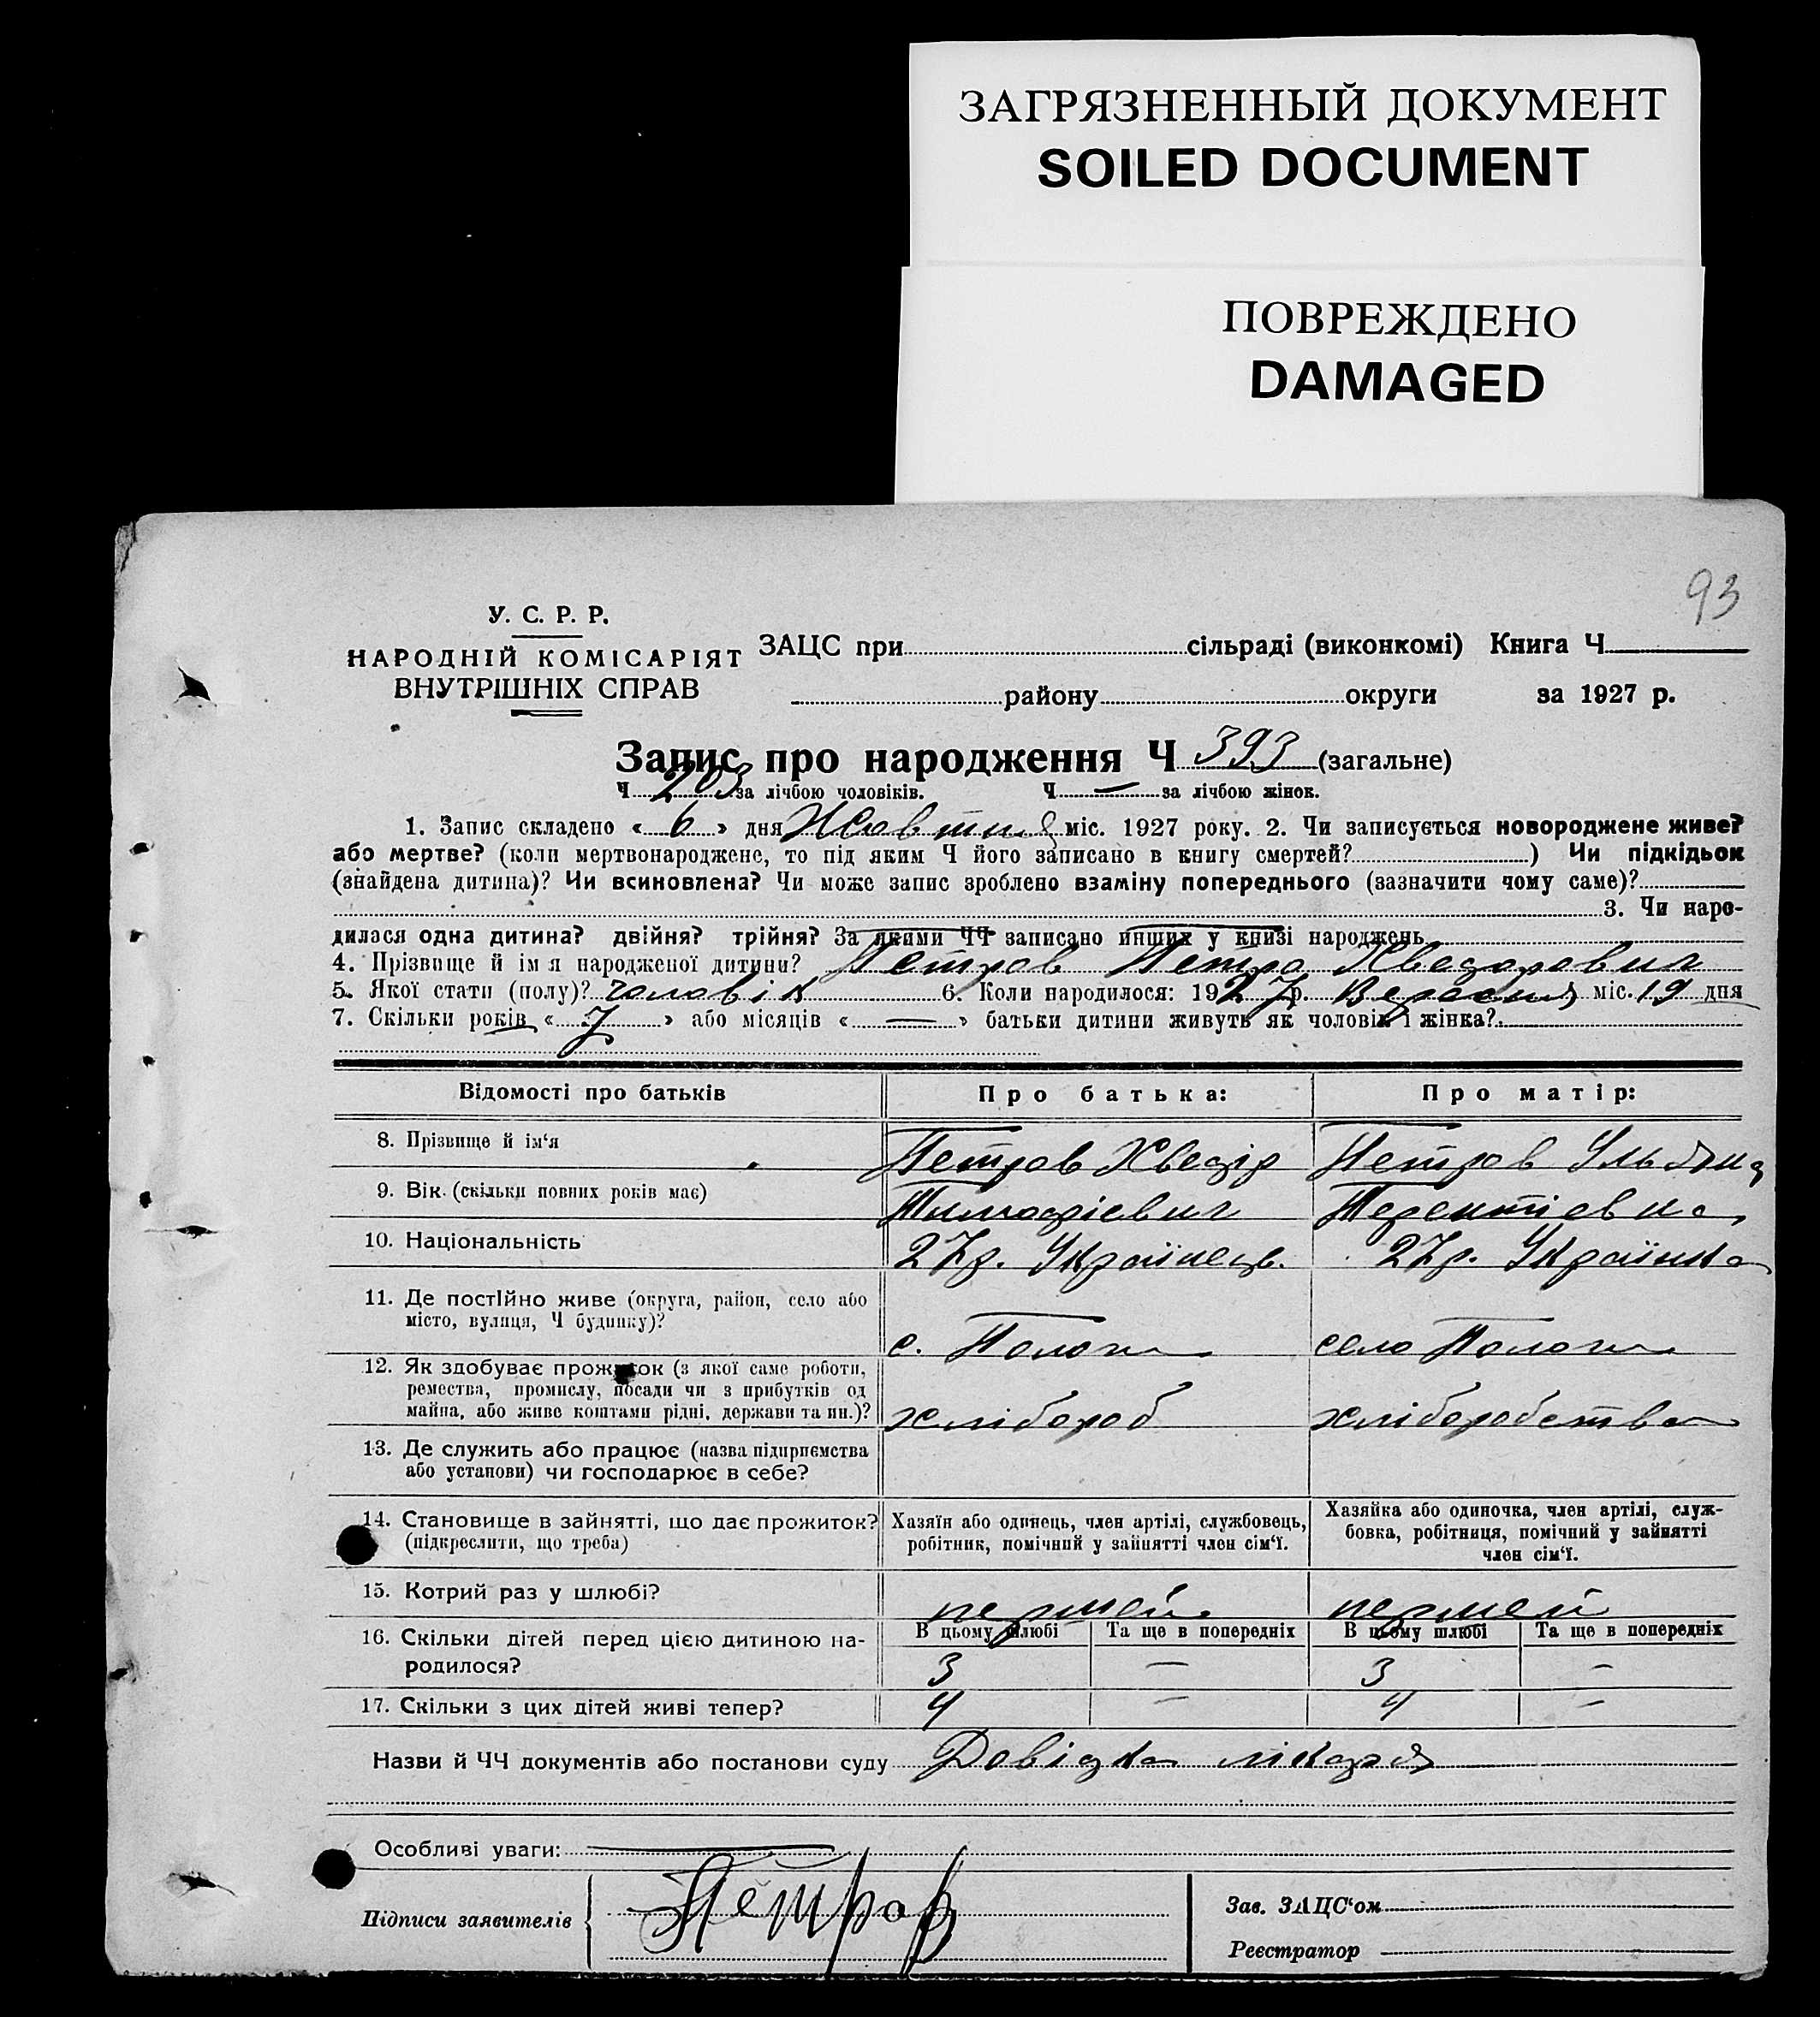 ЗАГРЯЗНЕННЫЙ ДОКУМЕНТ
SOILED DOCUMENT
ПОВРЕЖДЕНО
DAMAGED
93
У. С. Р. Р.
НАРОДНІЙ КОМІСАРІЯТ
ВНУТРІШНІХ СПРАВ
ЗАЦС при сільраді (виконкомі) Книга Ч
району округи за 1927 р.
Запис про народження Ч 393 (загальне)
Ч 203 за лічбою чоловіків. Ч — за лічбою жінок.
1. Запис складено « 6 » дня Жовтня міс. 1927 року. 2. Чи записується новороджене живе?
або мертве? (коли мертвонароджене, то під яким Ч його записано в книгу смертей? ) Чи підкідьок
(знайдена дитина)? Чи всиновлена? Чи може запис зроблено взаміну попереднього (зазначити чому саме)?
3. Чи наро-
дилася одна дитина? двійня? трійня? За якими ЧЧ записано инших у книзі народжень
4. Прізвище й ім я народженої дитини? Петров Петро Хведорович
5. Якої стати (полу)? чоловік 6. Коли народилося: 1927р. Вересня міс. 19 дня
7. Скільки років « 7 » або місяців « — » батьки дитини живуть як чоловік і жінка?
Відомості про батьків Про батька: Про матір:
8. Прізвище й ім‘я Петров Хведір Петров Ульяна
9. Вік (скільки повних років має) Тимофієвич Терентієвна
10. Національність 27р. Українець. 27р. Українка
11. Де постійно живе (округа, район, село або
місто, вулиця, Ч будинку)? с. Пологи село Пологи
12. Як здобуває прожиток (з якої саме роботи,
ремества, промислу, посади чи з прибутків од
майна, або живе коштами рідні, держави та ин.)? хлібороб хліборобства
13. Де служить або працює (назва підприємства
або установи) чи господарює в себе?
14. Становище в зайнятті, що дає прожиток?
(підкреслити, що треба)
Хазяїн або одинець, член артілі, службовець,
робітник, помічний у зайнятті член сім‘ї.
Хазяйка або одиночка, член артілі, служ-
бовка, робітниця, помічний у зайнятті
член сім‘ї.
15. Котрий раз у шлюбі? перший перший
16. Скільки дітей перед цією дитиною на-
родилося?
В цьому шлюбі Та ще в попередніх В цьому шлюбі Та ще в попередніх
3 — 3 —
17. Скільки з цих дітей живі тепер? 4 — 4 —
Назви й ЧЧ документів або постанови суду Довідка лікаря
Особливі уваги:
Підписи заявителів Петров
Зав. ЗАЦС‘ом
Реєстратор